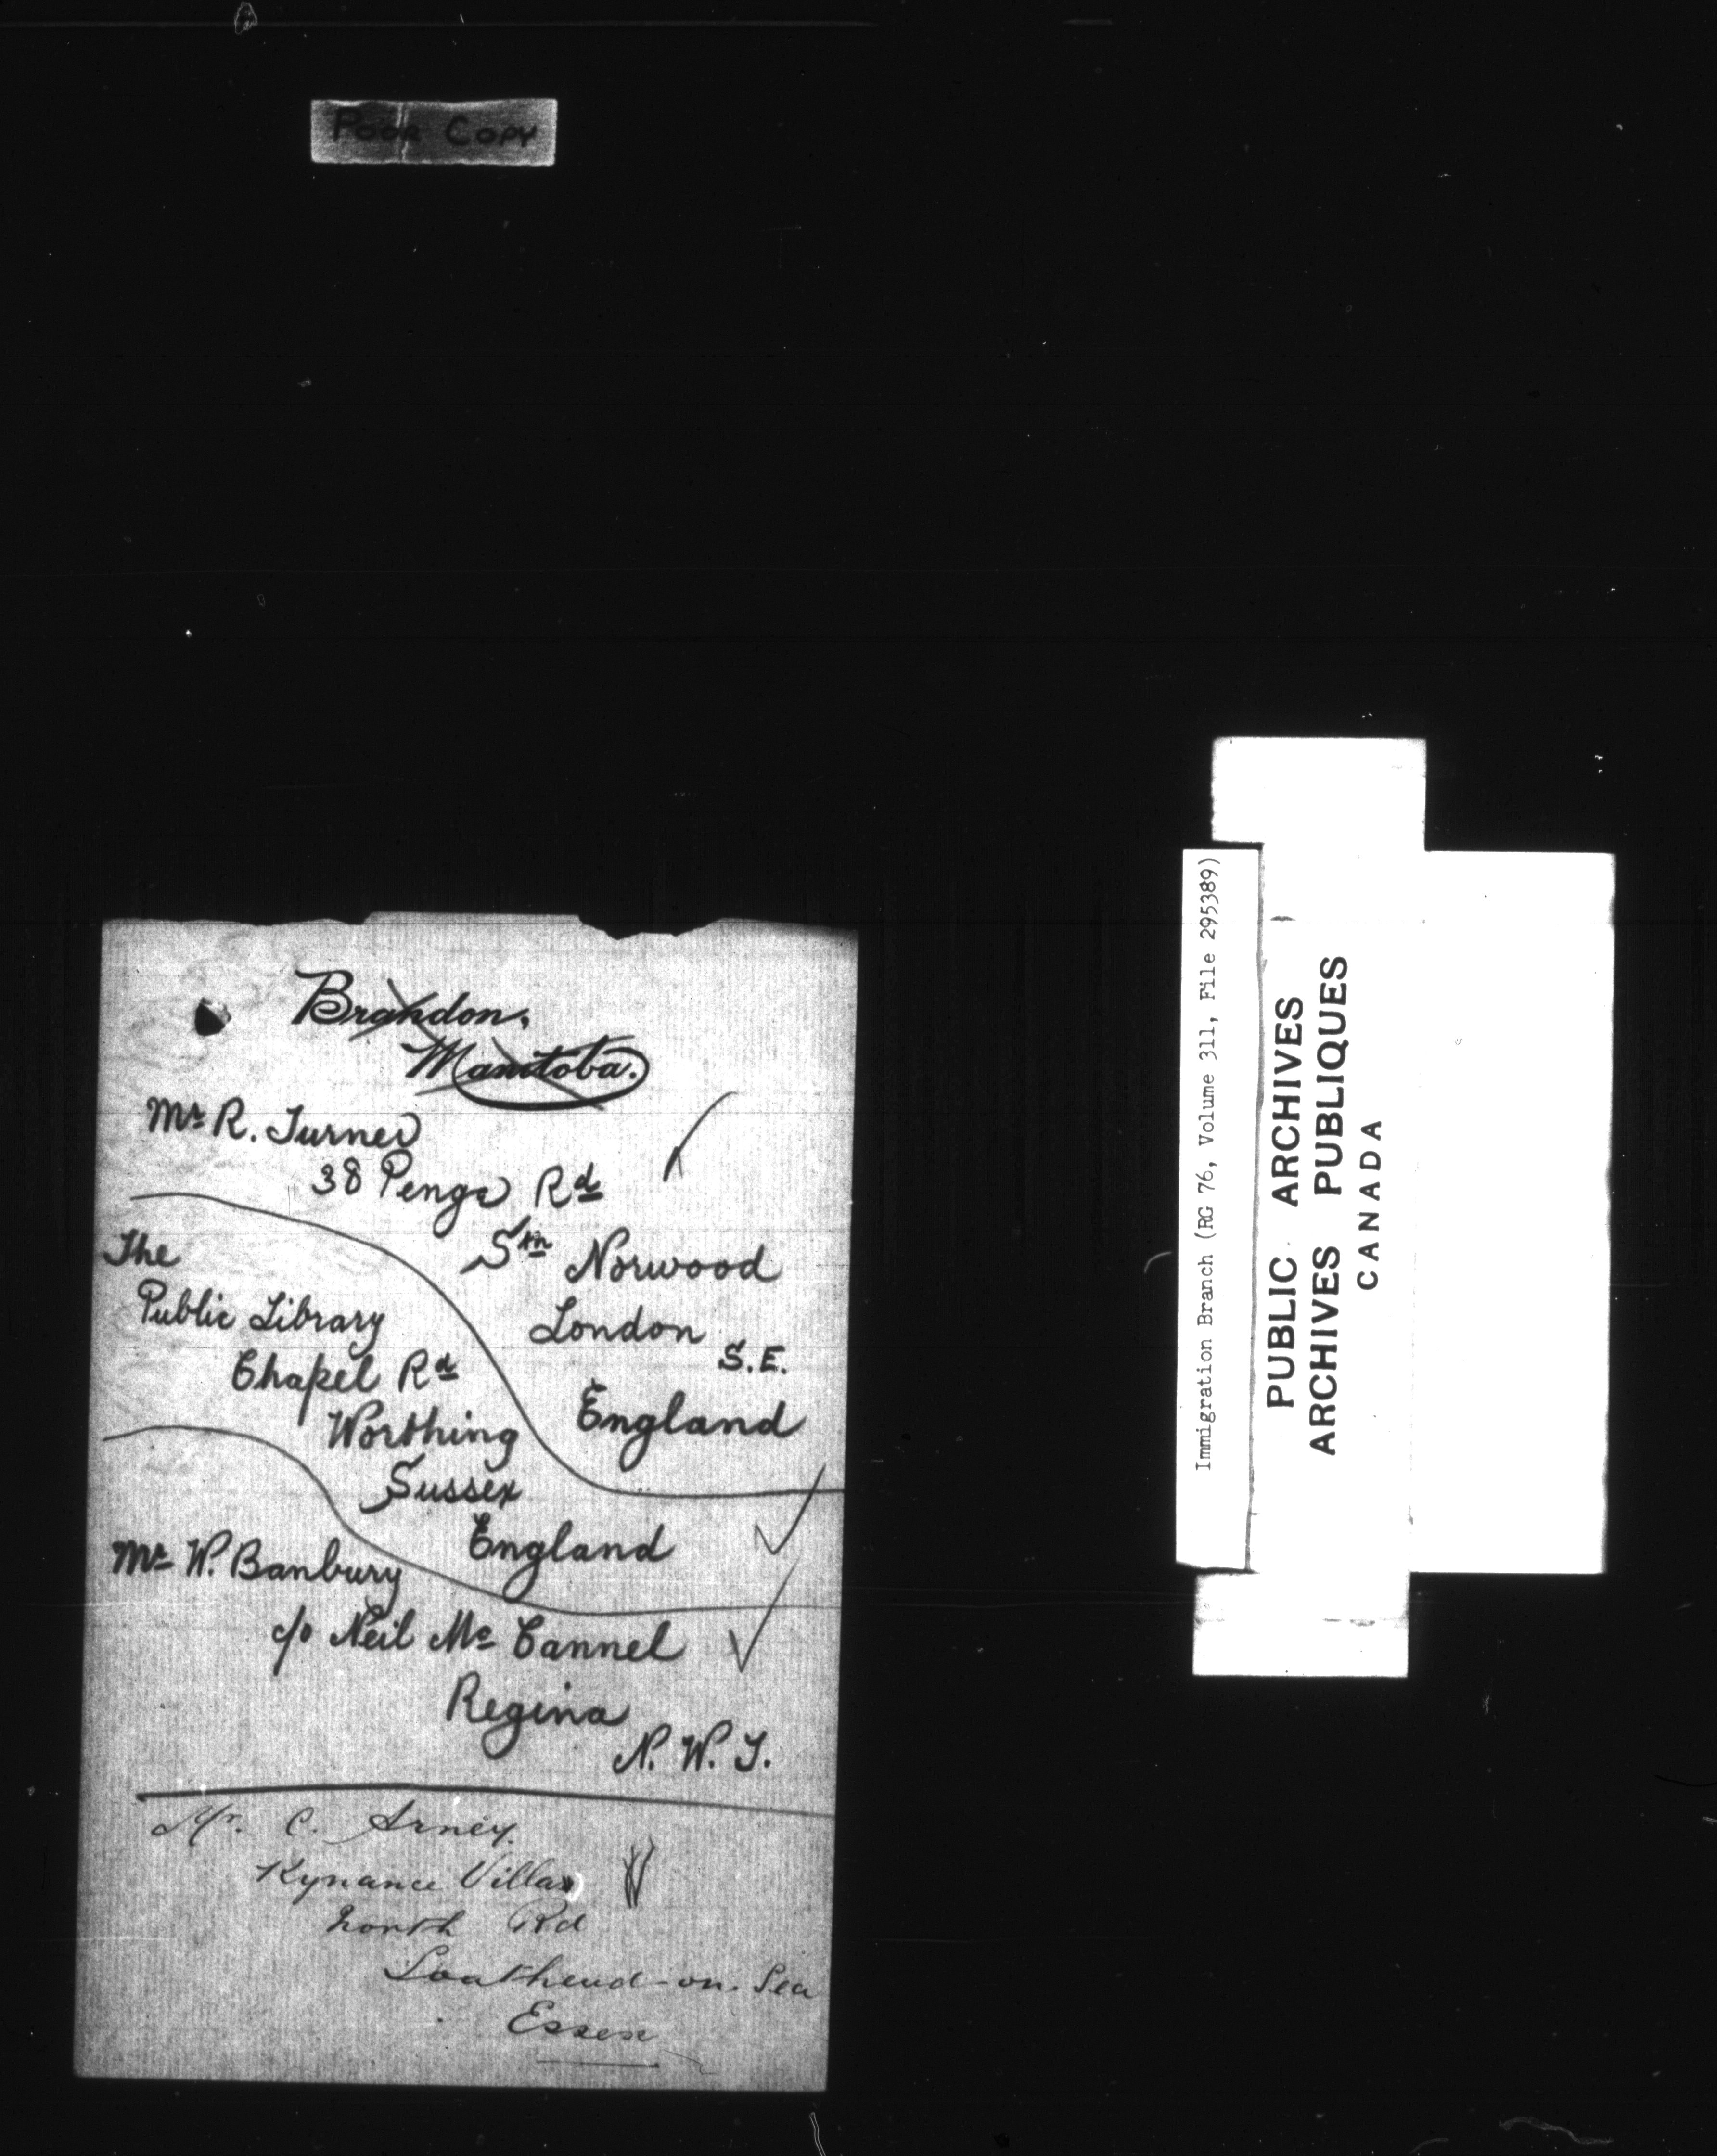 Poor Copy
Brandon,
Manitoba.
Mr R. Turner
38 Penge Rd
Sth Norwood
London
S.E.
England
The
Public Library
Chapel Rd
Worthing
Sussex
England
Mr W. Banbury
c/o Neil Mc Cannel
Regina
N. W. T.
Mr. C. Arney.
Kynance Villas
North Rd
Southend-on-Sea
Essex
Immigration Branch (RG 76, Volume 311, File 295389)
PUBLIC ARCHIVES
ARCHIVES PUBLIQUES
CANADA